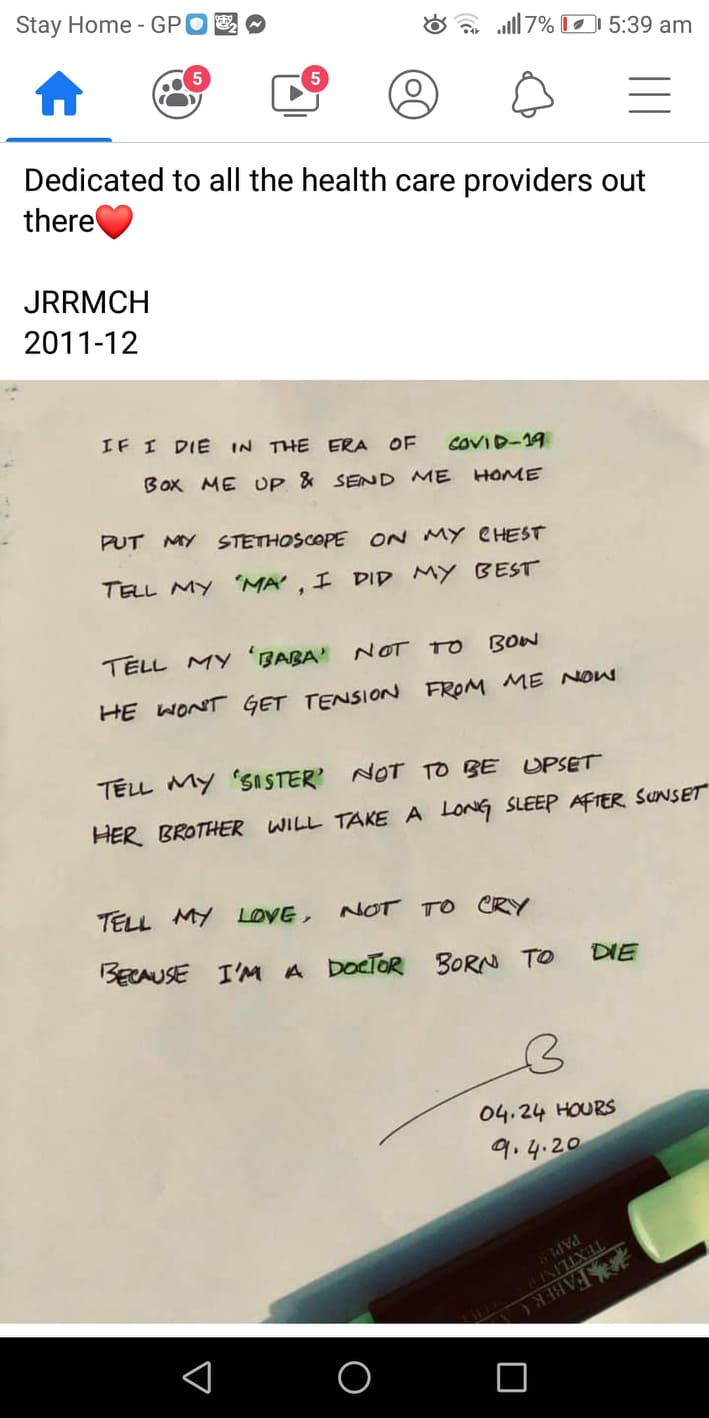 Stay Home - GP 7% 5:39 am
5 5
Dedicated to all the health care providers out
there❤️
JRRMCH
2011-12
IF I DIE IN THE ERA OF COVID-19
BOX ME UP & SEND ME HOME
PUT MY STETHOSCOPE ON MY CHEST
TELL MY 'MA', I DID MY BEST
TELL MY 'BABA' NOT TO BOW
HE WONT GET TENSION FROM ME NOW
TELL MY 'SISTER' NOT TO BE UPSET
HER BROTHER WILL TAKE A LONG SLEEP AFTER SUNSET
TELL MY LOVE, NOT TO CRY
BECAUSE I'M A DOCTOR BORN TO DIE
04.24 HOURS
9.4.20
FABER
TEXTLINER
PAPER